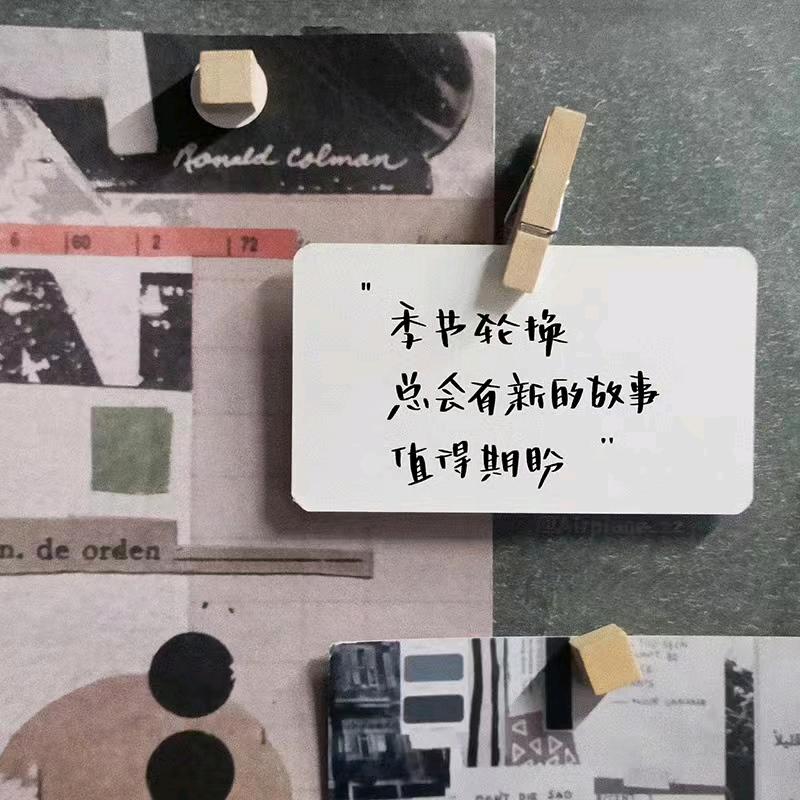 Ronald Colman
6 60 2 72
"季节轮换
总会有新的故事
值得期盼"
@Airplane_zz
n. de orden
DON'T DIE SAD